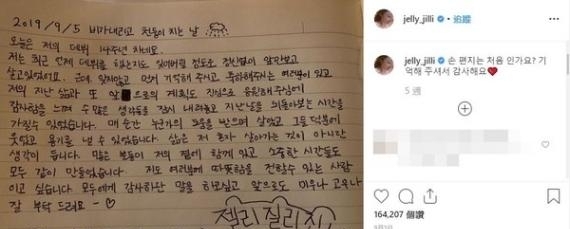 2019/9/5 비가내리고 천둥이 치는 날
오늘은 저의 데뷔 14주년 차네요.
저는 최근 언제 데뷔를 하는지도 잊어버릴 정도로 정신없이 앞만보고
살고있었어요. 근데 잊지않고 먼저 기억해 주시고 축하해주시는 여러분이 있고
저의 지난 삶과 또 앞으로의 계획도 진심으로 응원해주심에
감사함을 느끼며 수많은 생각들을 잠시 내려놓고 지난날을 되돌아보는 시간을
가질수 있었습니다. 매 순간 누군가의 도움을 받으며 살았고 그들 덕분에
웃었고 용기를 낼 수 있었습니다. 삶은 저 혼자 살아가는 것이 아니란
생각이 듭니다. 많은 분들이 저의 곁에 함께 있고 소중한 시간들도
모두 같이 만들었습니다. 저도 여러분께 따뜻함을 전할수 있는 사람
이고 싶습니다. 모두에게 감사하단 말을 하고싶고 앞으로도 미우나 고우나
잘 부탁 드려요 ~ ♡
젤리젤리죠
jelly_jilli ✓ • 追蹤
jelly_jilli ✓ 손 편지는 처음 인가요? 기
억해 주셔서 감사해요❤
5 週
164,207 個讚
9月5日